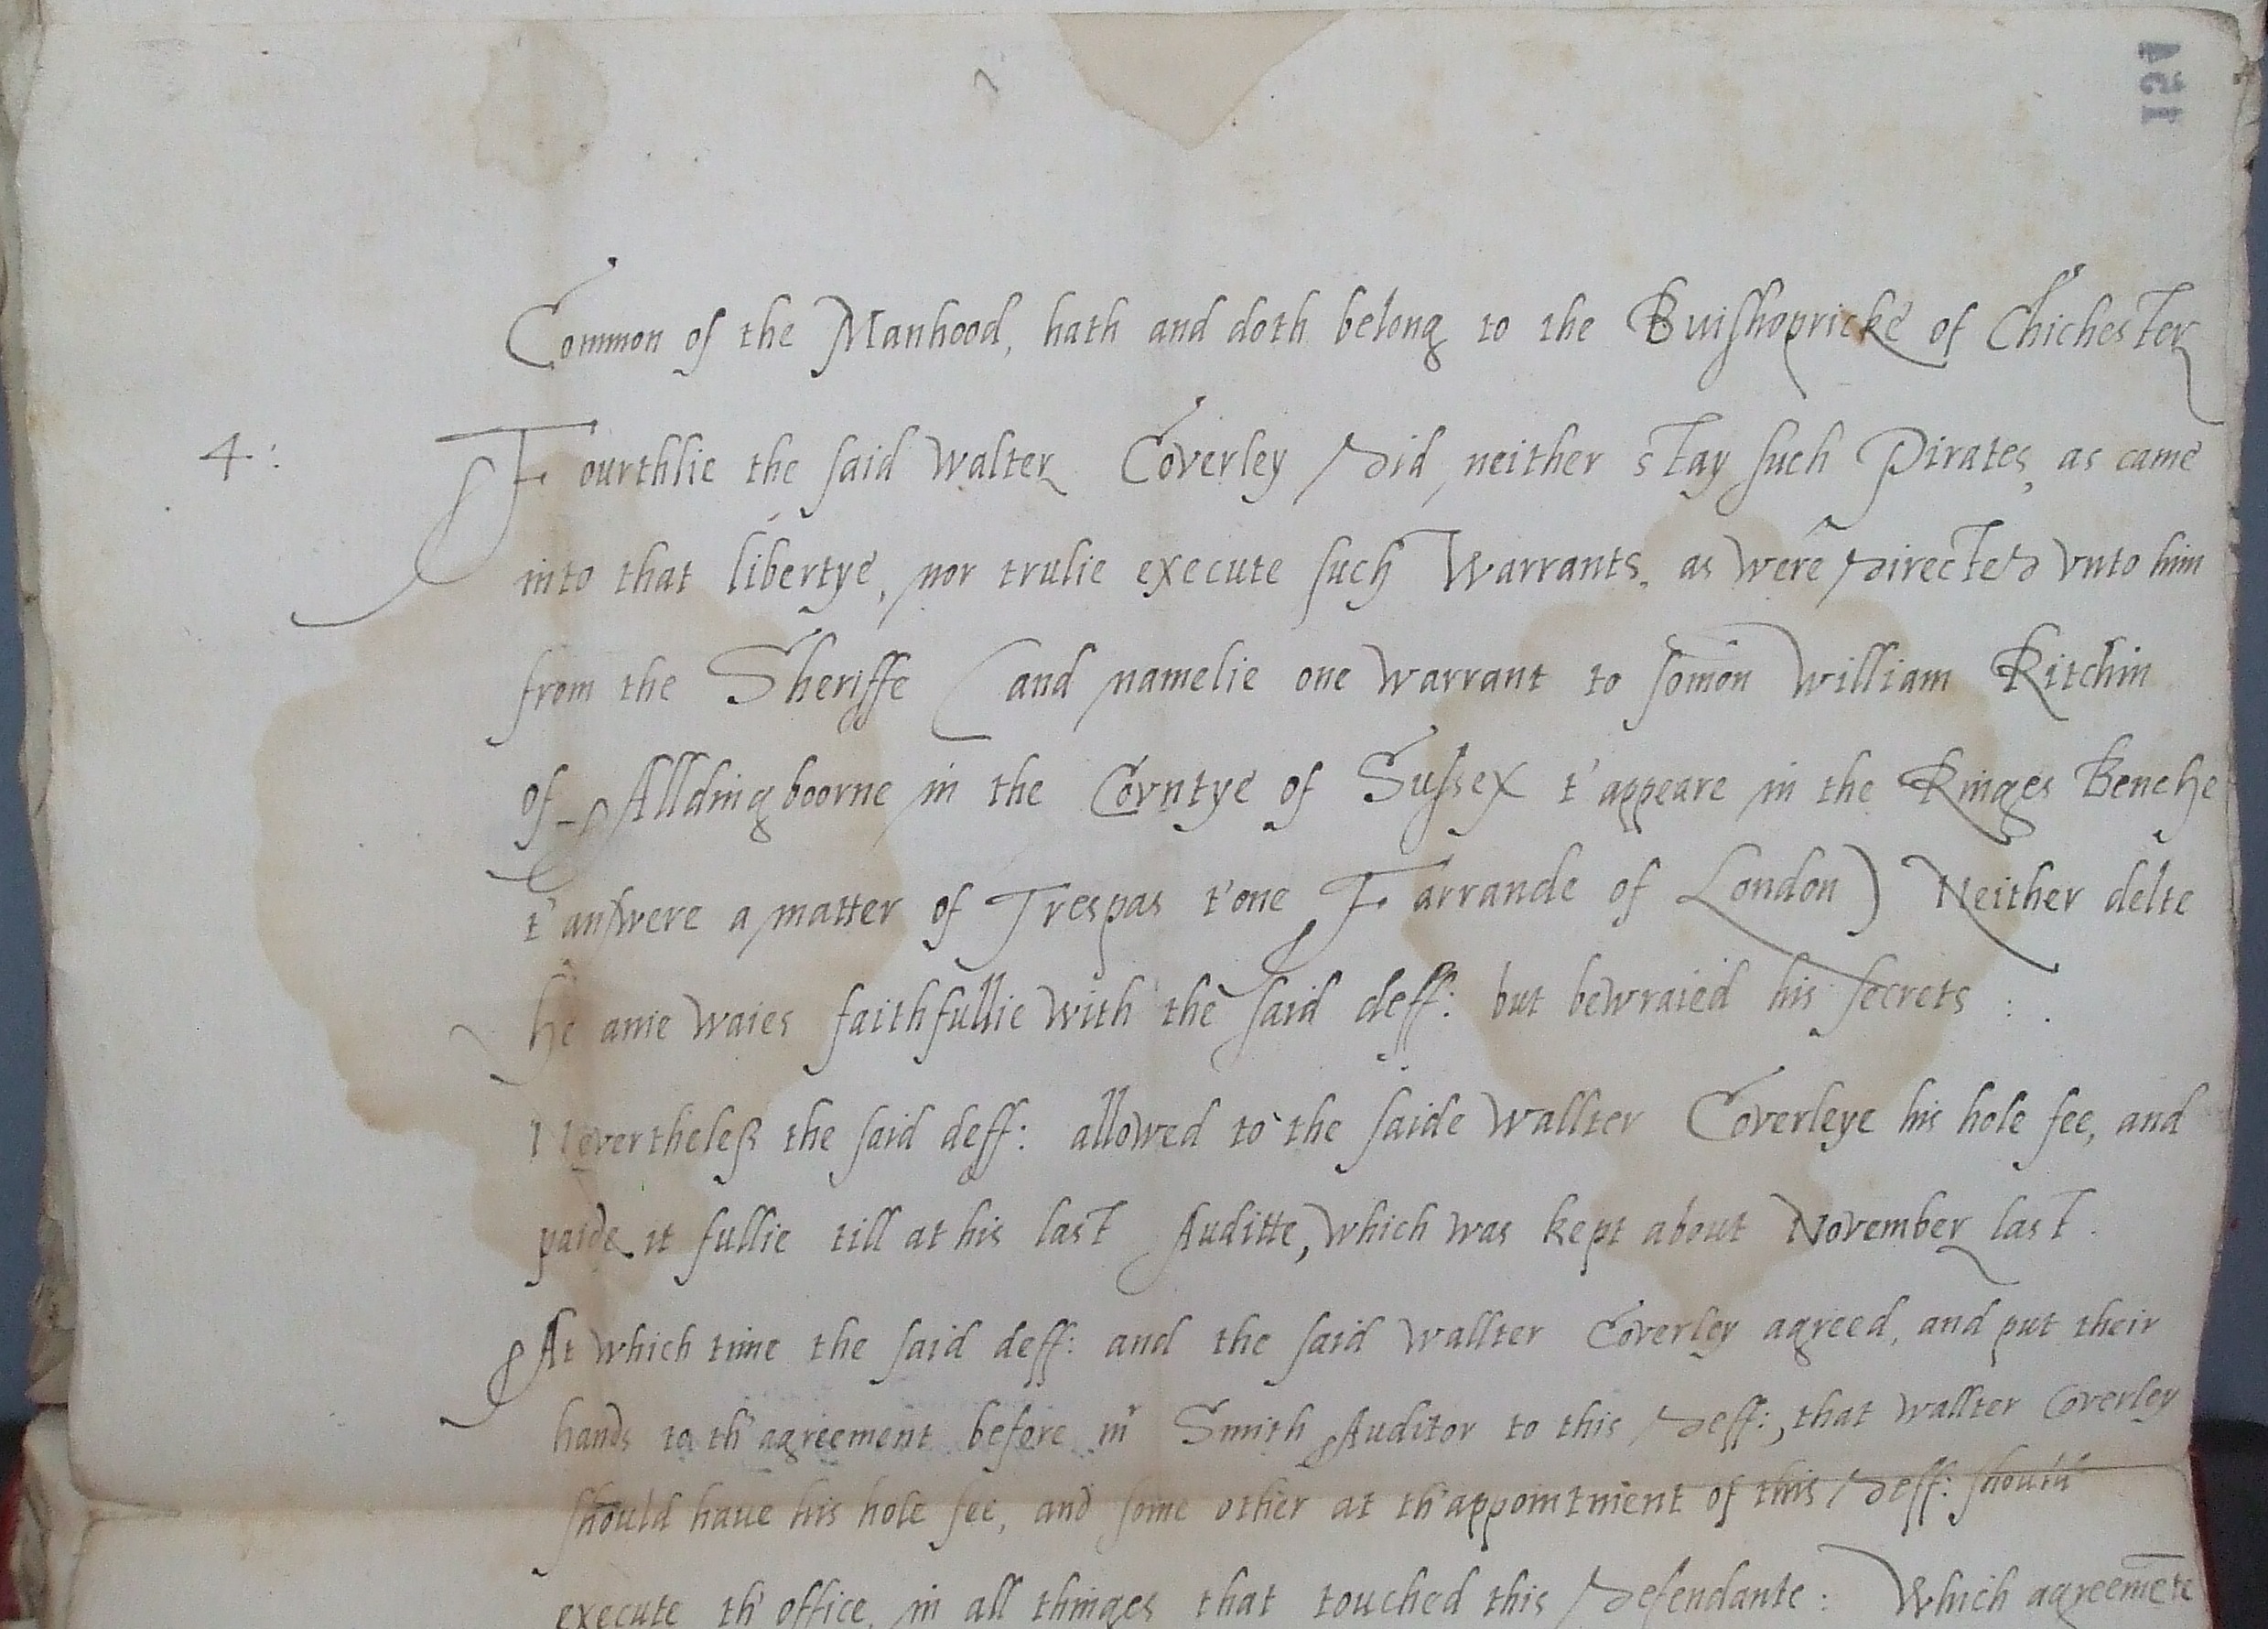 151
Common of the Manhood, hath and doth belong to the Buishopricke of Chichester
4: Fourthlie the said Walter Coverley did neither stay such Pirates, as came
into that libertye, nor trulie execute such Warrants, as were directed vnto him
from the Sheriffe (and namelie one Warrant to somõn William Kitchin
of Alldingboorne in the Covntye of Sussex t'appeare in the Kinges Benche
t'answere a matter of Trespas t'one Farrande of London) Neither delte
he anie waies faithfullie with the said deff: but bewraied his secrets :.
Neverthelesse the said deff: allowed to the saide Wallter Coverleye his hole fee, and
paide it fullie till at his last Auditte, which was kept about November last.
At which time the said deff: and the said Wallter Coverley agreed, and put their
hands to th'agreement before mr Smith Auditor to this deff:, that Wallter Coverley
should haue his hole fee, and some other at th'appointment of this deff: should
execute th'office, in all thinges that touched this defendante: Which agreemēte